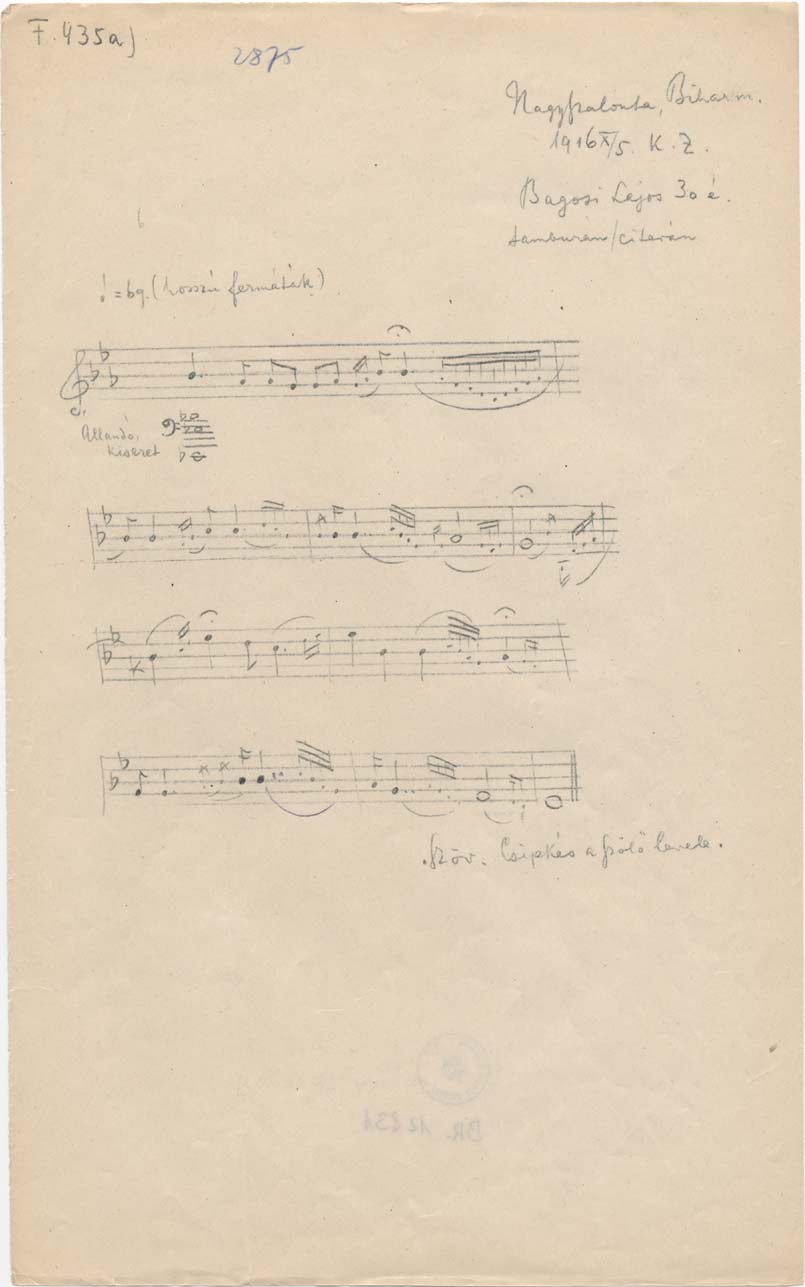 F. 435a)
2875
Nagyszalonta, Biharm.
1916 X/5. K. Z.
Bagosi Lajos 30 é.
tamburán/citerán
6
(hosszú fermáták)
Állandó
kíséret
Szöv. Csipkés a szőlő levele.
BR. 12831